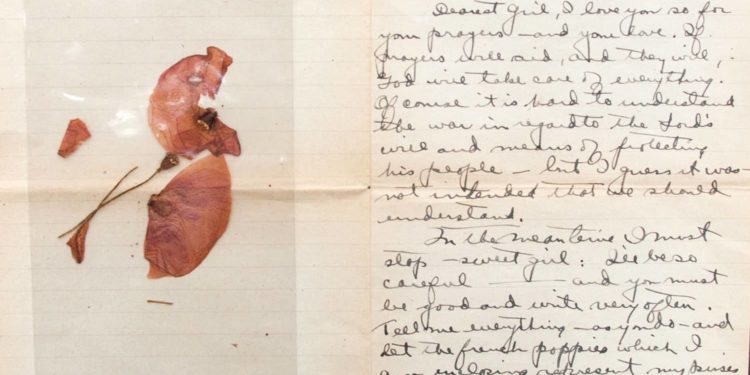 Dearest Girl, I love you so for
your prayers – and your love. If
prayers will aid, and they will,
God will take care of everything.
Of course it is hard to understand
the war in regard to the Lord's
will and means of protecting
his people – but I guess it was
not intended that we should
understand.
In the meantime, I must
stop – sweet girl: I'll be so
careful — — and you must
be good and write very often.
Tell me everything – as you do – and
let the french poppies which I
am enclosing represent my kisses